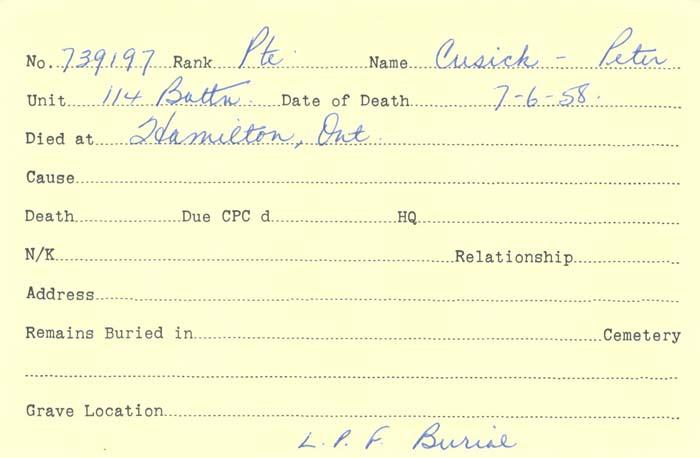 No. 739197 Rank Pte. Name Cusick - Peter
Unit 114 Battn. Date of Death 7-6-58.
Died at Hamilton, Ont.
Cause
Death Due CPC d HQ
N/K Relationship
Address
Remains Buried in Cemetery
Grave Location
L. P. F. Burial